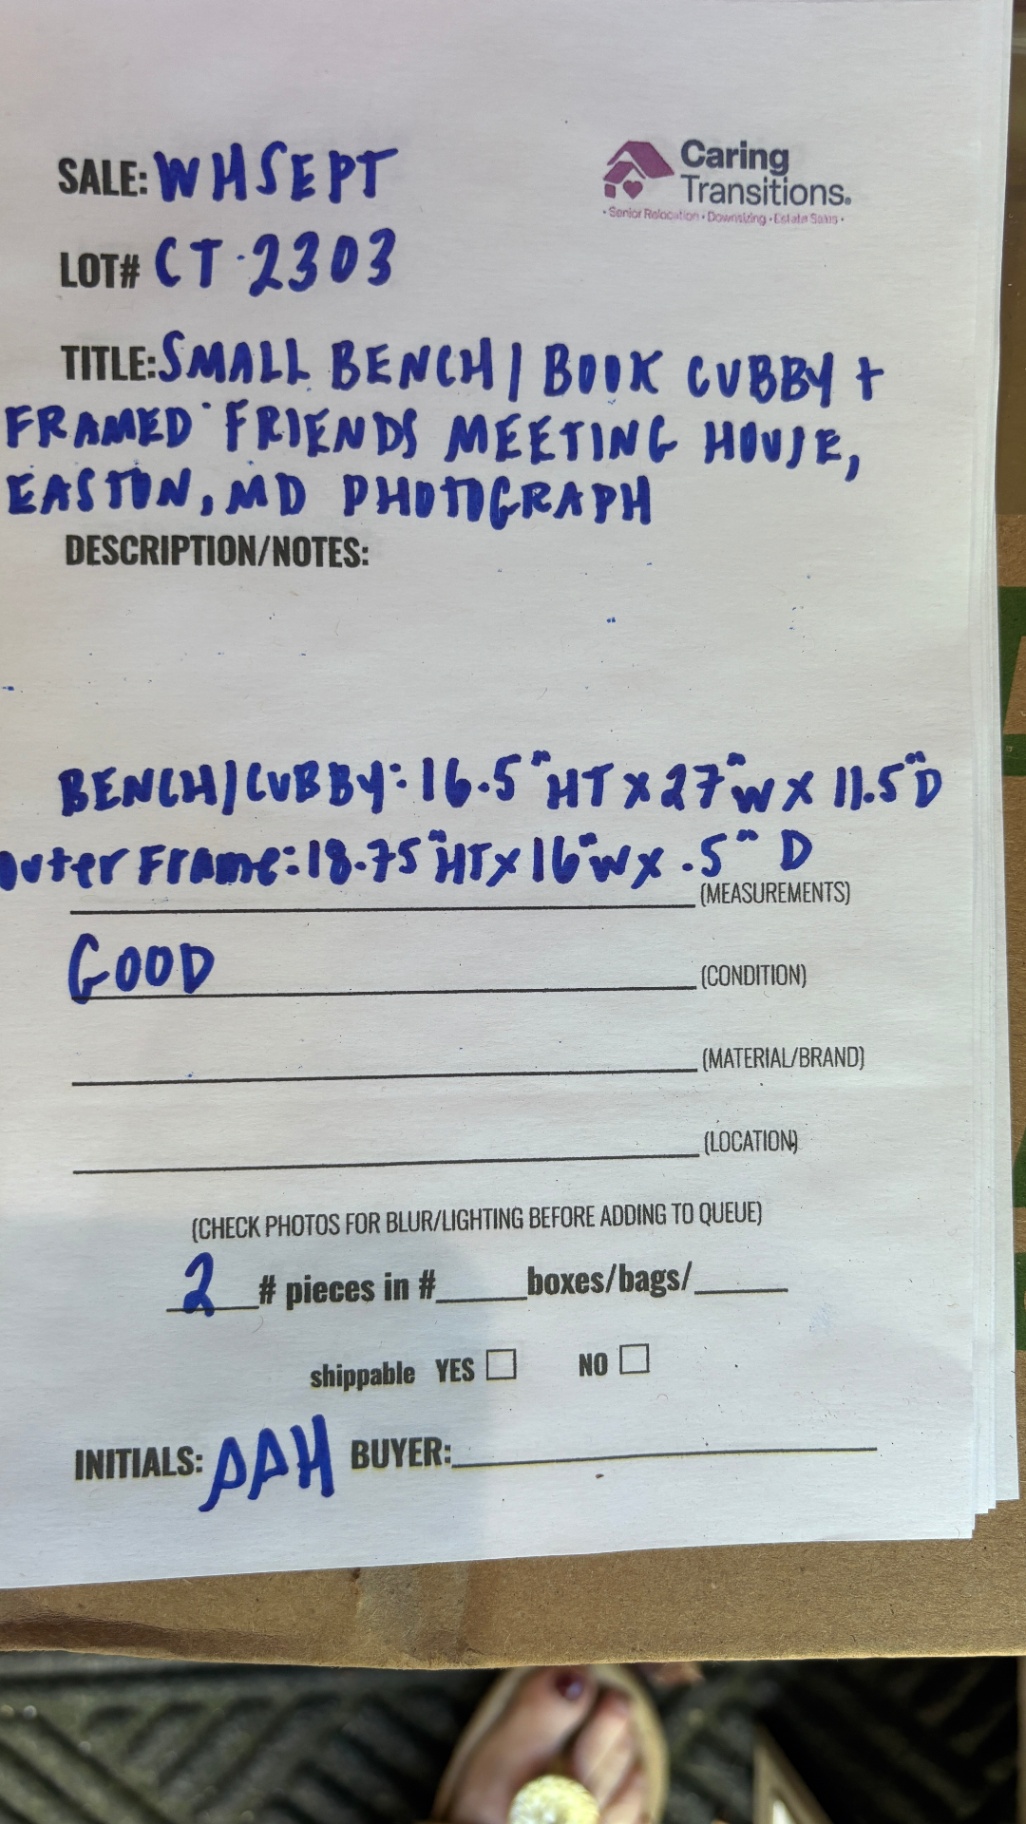 Caring
Transitions.
• Senior Relocation • Downsizing • Estate Sales •
SALE: WHSEPT
LOT# CT-2303
TITLE: SMALL BENCH/BOOK CUBBY +
FRAMED FRIENDS MEETING HOUSE,
EASTON, MD PHOTOGRAPH
DESCRIPTION/NOTES:
BENCH/CUBBY: 16.5" HT X 27" W X 11.5" D
Outer Frame: 18.75" HT X 16" W X .5" D
(MEASUREMENTS)
GOOD (CONDITION)
(MATERIAL/BRAND)
(LOCATION)
(CHECK PHOTOS FOR BLUR/LIGHTING BEFORE ADDING TO QUEUE)
2 # pieces in #____boxes/bags/____
shippable YES ☐ NO ☐
INITIALS: AAH BUYER:____